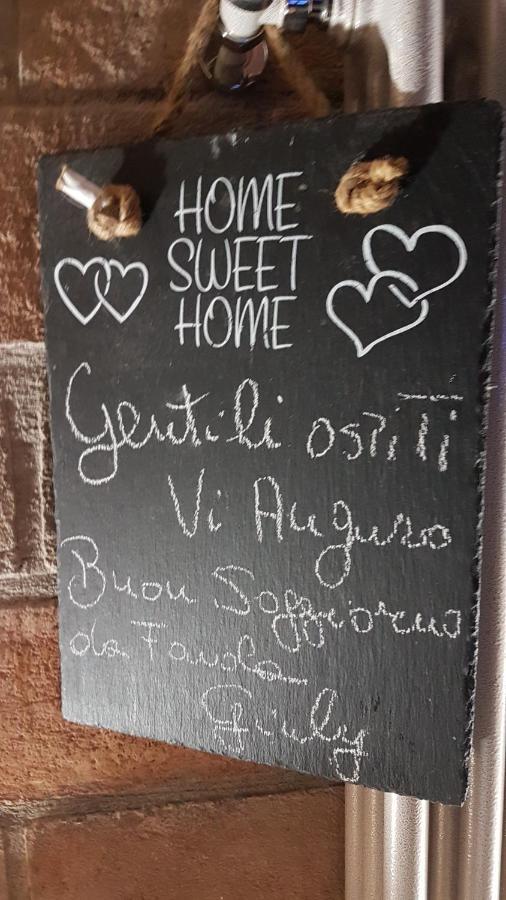 HOME
SWEET
HOME
Gentili ospiTi
Vi Auguro
Buon Soggiorno
da Favola
Giuly